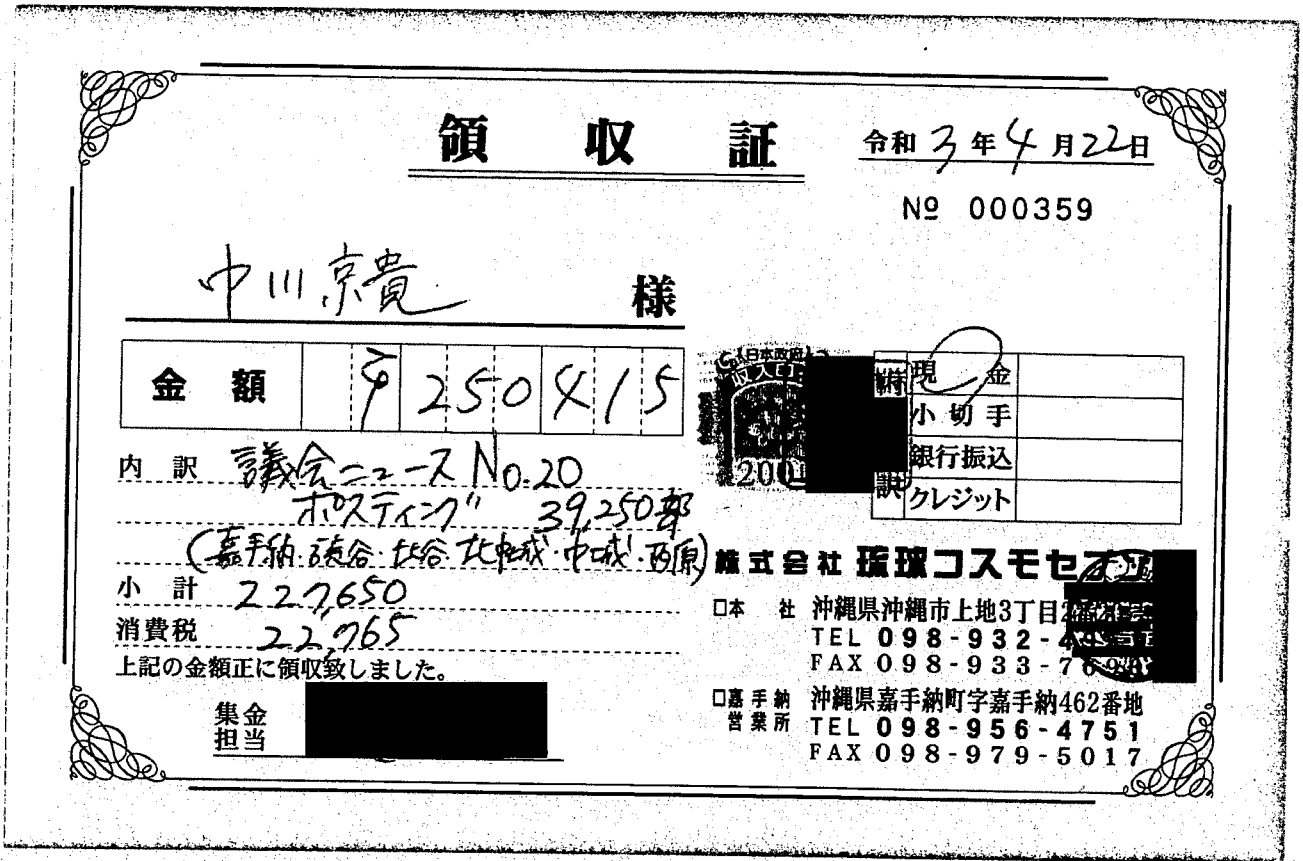 領収証
令和3年4月22日
№ 000359
中川京貴 様
金額 ¥250415
日本政府
収入印
200
内訳 現金
小切手
銀行振込
クレジット
内訳 議会ニュース No.20
ポスティング 39,250部
(嘉手納・読谷・北谷・北中城・中城・西原)
小計 227,650
消費税 22,765
上記の金額正に領収致しました。
集金
担当
株式会社 琉球コスモセ
□本社 沖縄県沖縄市上地3丁目2
TEL 098-932-4
FAX 098-933-7
□嘉手納営業所 沖縄県嘉手納町字嘉手納462番地
TEL 098-956-4751
FAX 098-979-5017